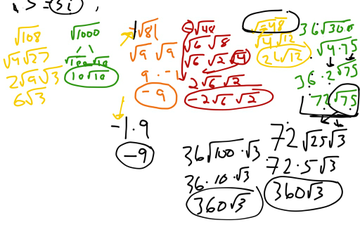 √108
√4 √27
2√9 √3
6√3
√1000
√100 √10
10√10
√81
√9 √9
9
-9
-1·9
-9
√6 √8
√6 √2 √4
2√6 √2
-2√6 √2
√48
√4 √12
2√12
36√300
√4·75
36·2√75
72√75
36√100·√3
36·10·√3
360√3
72√25√3
72·5√3
360√3